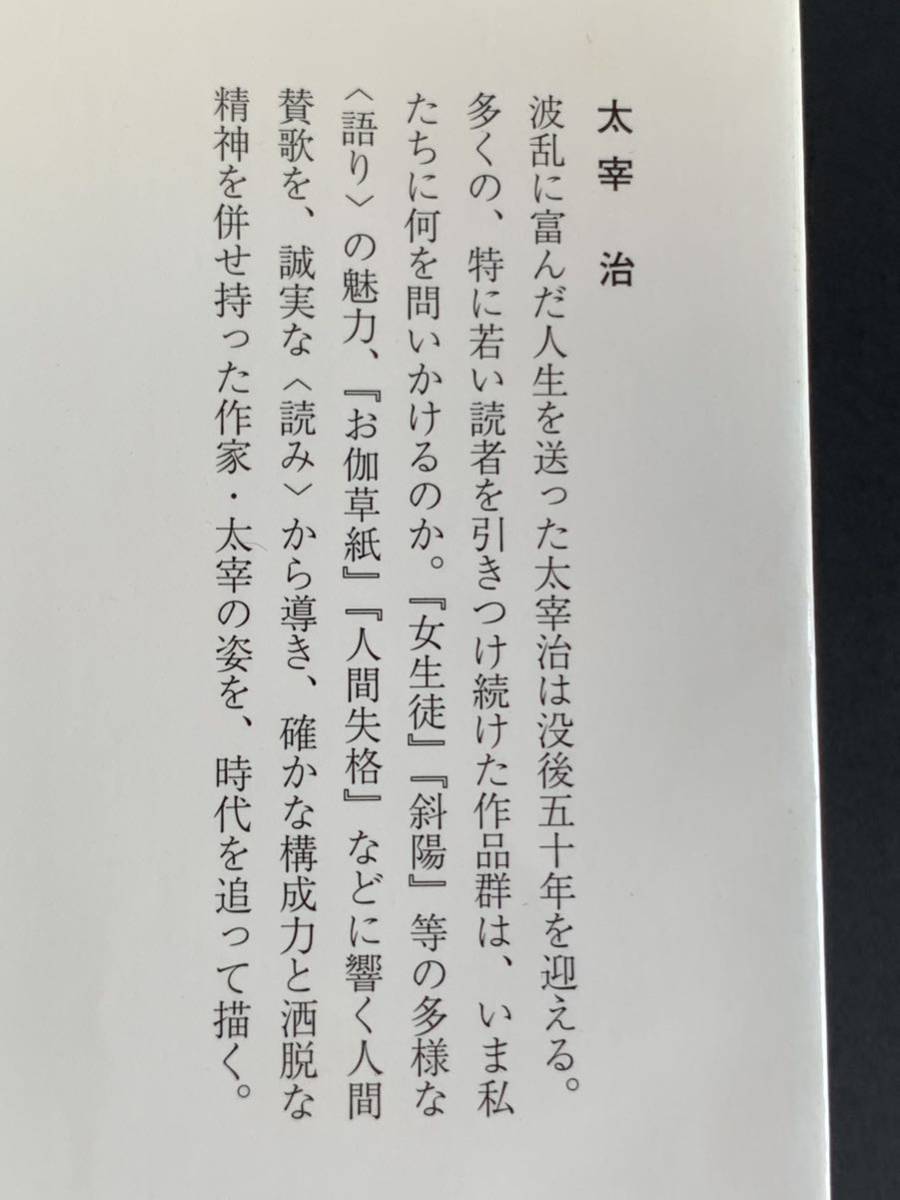 太宰 治
波乱に富んだ人生を送った太宰治は没後五十年を迎える。
多くの、特に若い読者を引きつけ続けた作品群は、いま私
たちに何を問いかけるのか。『女生徒』『斜陽』等の多様な
〈語り〉の魅力、『お伽草紙』『人間失格』などに響く人間
賛歌を、誠実な〈読み〉から導き、確かな構成力と洒脱な
精神を併せ持った作家・太宰の姿を、時代を追って描く。